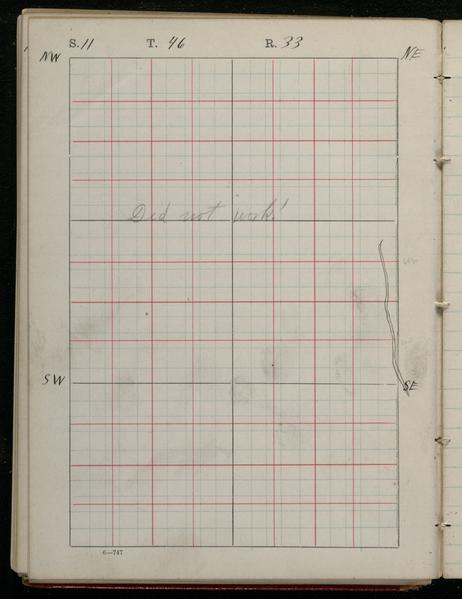 S. 11 T. 46 R. 33
NW NE
Did not work!
SW SE
6—747